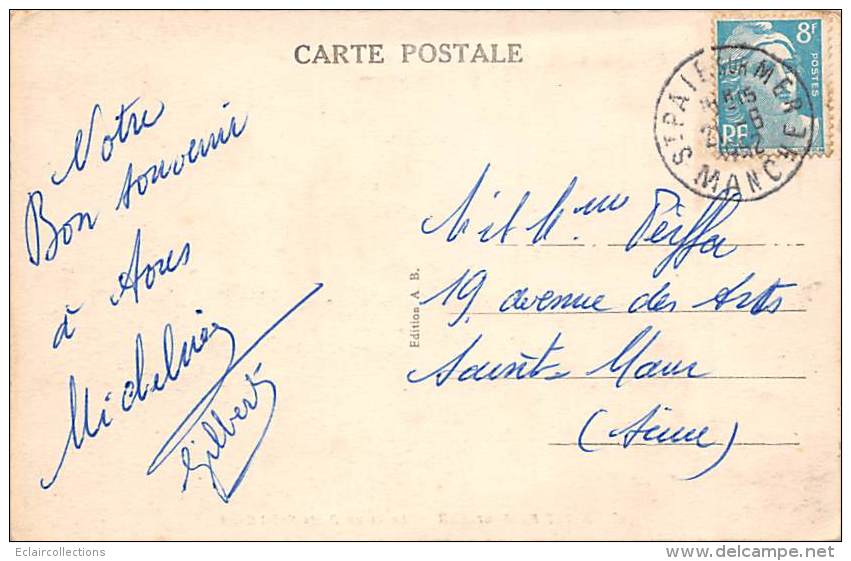 CARTE POSTALE
8F
POSTES
RF
ST PAIR SUR MER
MANCHE
Notre
Bon souvenir
à tous
Micheline
Gilbert
M et Mme Peiffer
19, avenue des Arts
Saint-Maur
(Seine)
Edition A B.
Eclaircollections
www.delcampe.net